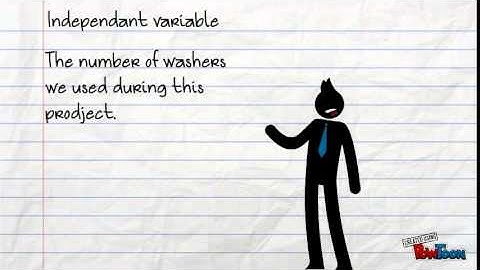 Independant variable
The number of washers
we used during this
prodject.
CREATED USING
POWTOON